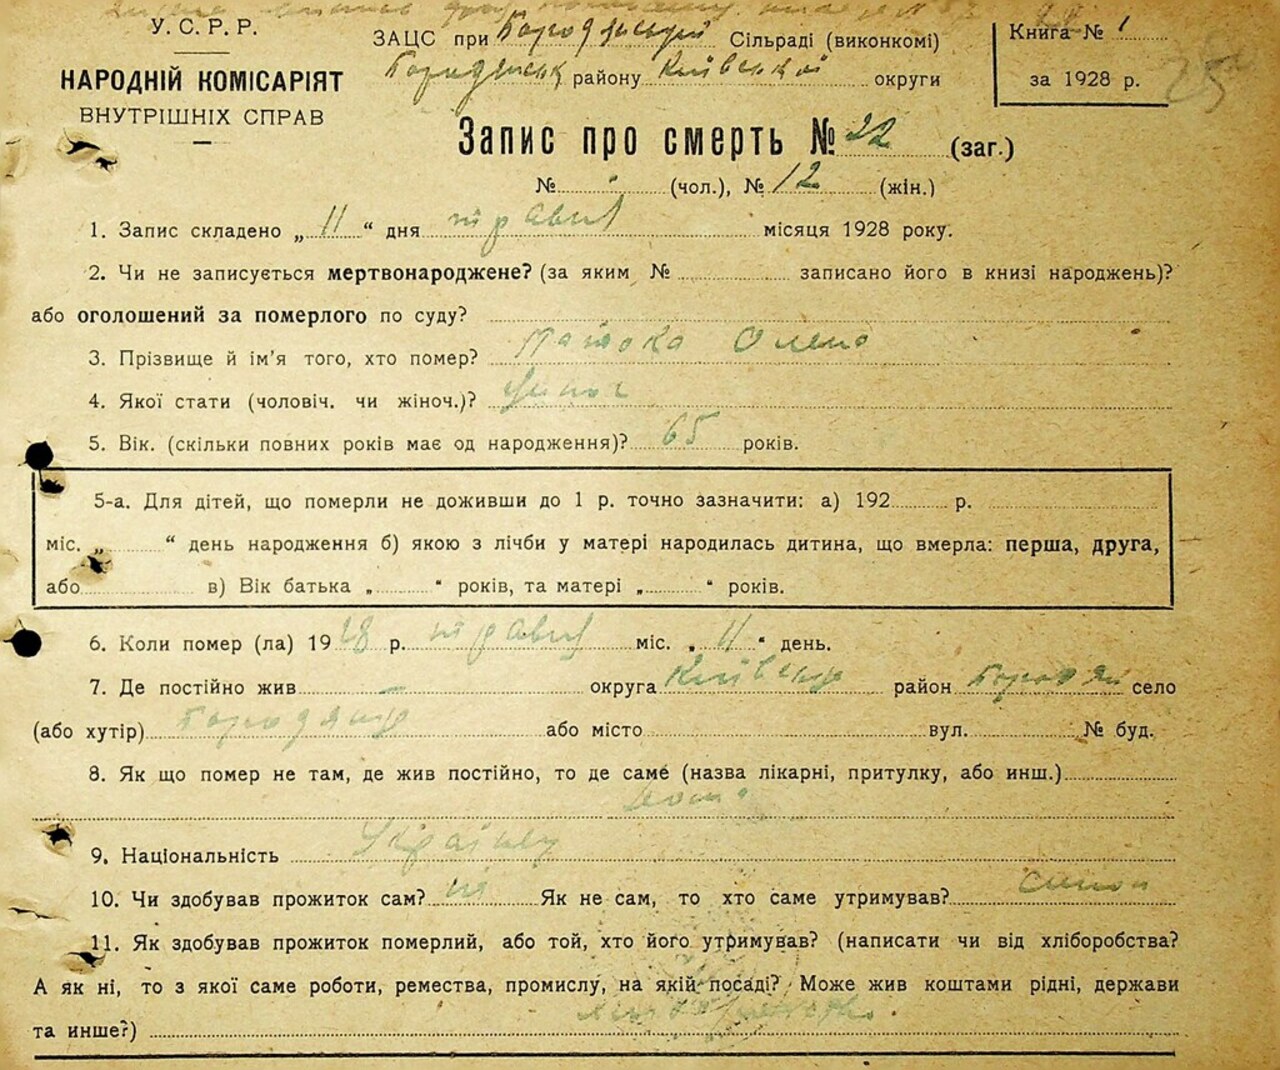 У. С. Р. Р.
НАРОДНІЙ КОМІСАРІЯТ
ВНУТРІШНІХ СПРАВ
ЗАЦС при Бородянській Сільраді (виконкомі)
Бородянськ району Київської округи
Книга № 1
за 1928 р.
Запис про смерть № 22 (заг.)
№ (чол.), № 12 (жін.)
1. Запис складено „ 11 “ дня травня місяця 1928 року.
2. Чи не записується мертвонароджене? (за яким № записано його в книзі народжень)?
або оголошений за померлого по суду?
3. Прізвище й ім'я того, хто помер? Олена
4. Якої стати (чоловіч. чи жіноч.)? жіноч
5. Вік. (скільки повних років має од народження)? 65 років.
5-а. Для дітей, що померли не доживши до 1 р. точно зазначити: а) 192 р.
міс. „ “ день народження б) якою з лічби у матері народилась дитина, що вмерла: перша, друга,
або в) Вік батька „ “ років, та матері „ “ років.
6. Коли помер (ла) 1928 р. травня міс. „ 11 “ день.
7. Де постійно жив — округа район село
(або хутір) або місто вул. № буд.
8. Як що помер не там, де жив постійно, то де саме (назва лікарні, притулку, або инш.)
дома
9. Національність
10. Чи здобував прожиток сам? ні Як не сам, то хто саме утримував?
11. Як здобував прожиток померлий, або той, хто його утримував? (написати чи від хліборобства?
А як ні, то з якої саме роботи, ремества, промислу, на якій посаді? Може жив коштами рідні, держави
та инше?)